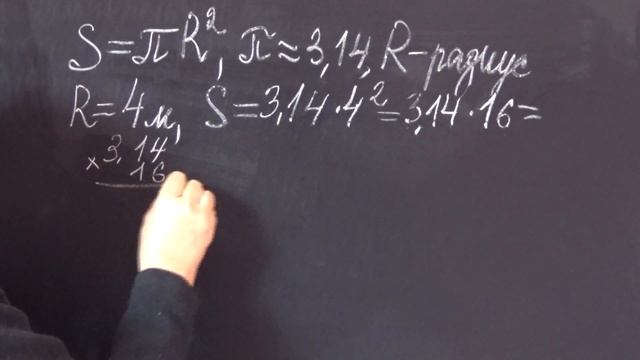 S = πR², π ≈ 3,14, R – радиус
R = 4м, S = 3,14 · 4² = 3,14 · 16 =
3,14
× 16